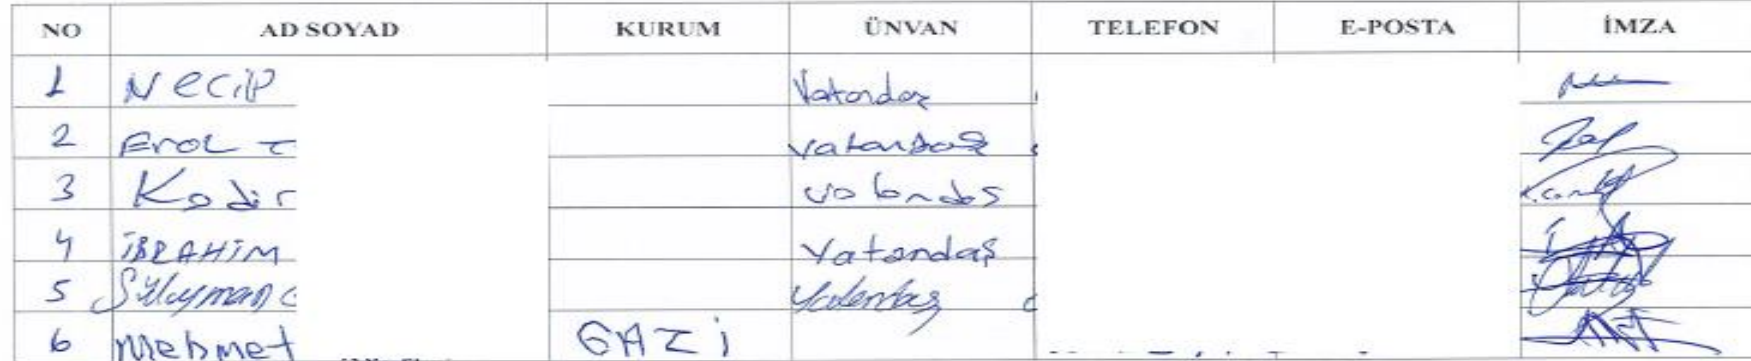 NO AD SOYAD KURUM ÜNVAN TELEFON E-POSTA İMZA
1 Necip Vatandaş
2 Erol Vatandaş
3 Kadir Vatandaş
4 İBRAHİM Vatandaş
5 Süleyman Vatandaş
6 Mehmet GAZİ